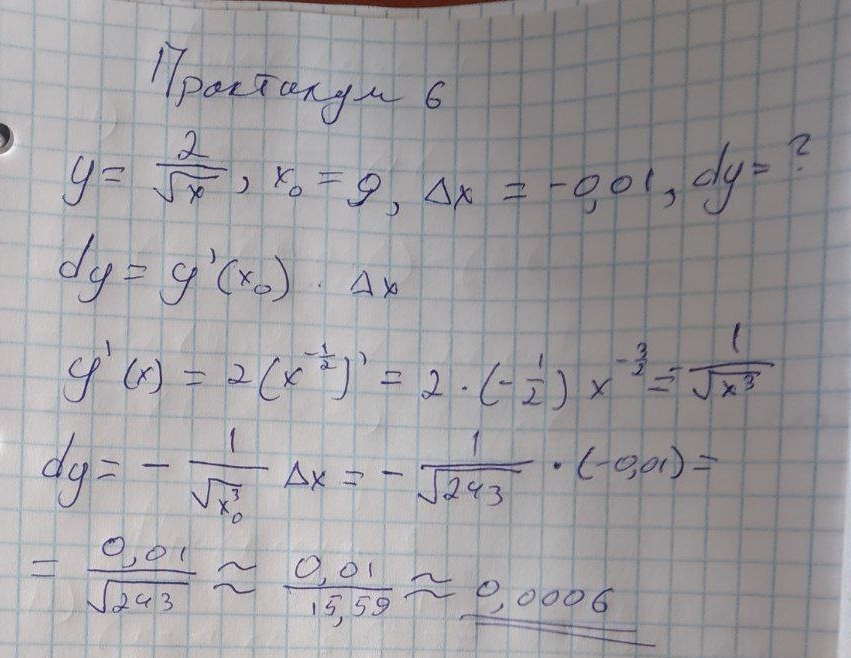 Практикум 6
y = 2/√x, x₀ = 9, Δx = -0,01, dy = ?
dy = y'(x₀) · Δx
y'(x) = 2(x^(-1/2))' = 2 · (-1/2) x^(-3/2) = -1/√x³
dy = - 1/√x₀³ Δx = - 1/√243 · (-0,01) =
= 0,01/√243 ≈ 0,01/15,59 ≈ 0,0006